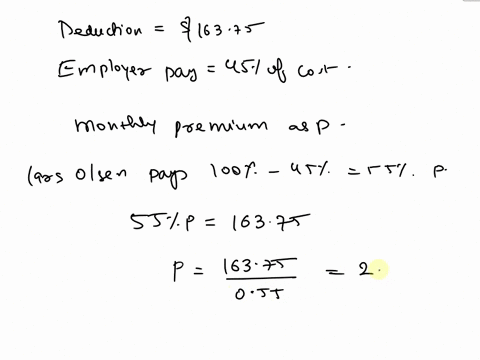 Deduction = $163.75
Employer pay = 45% of cost.
Monthly premium as P.
Lars Olsen pays 100% - 45% = 55% P.
55% P = 163.75
P = 163.75 / 0.55 = 2.